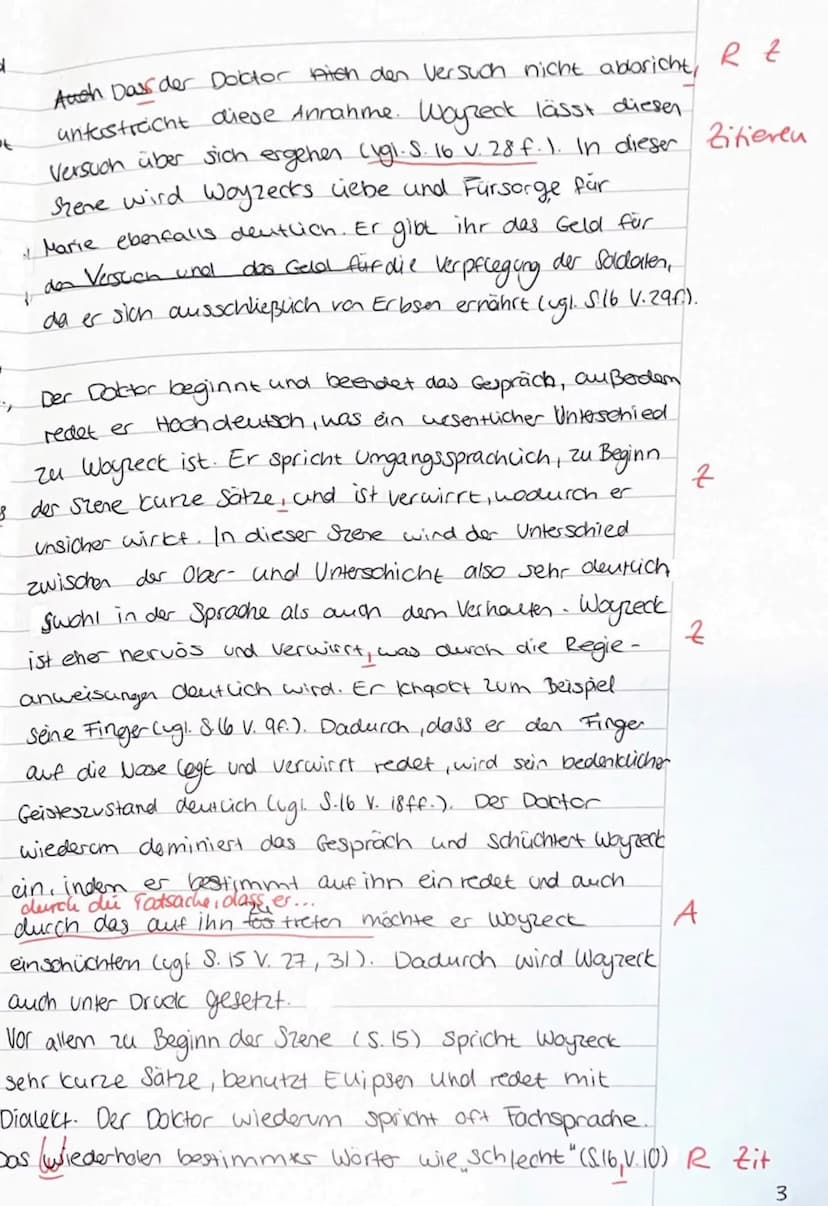 Auch Dass der Doktor sich den Versuch nicht abbricht, R Z
unterstreicht diese Annahme. Woyzeck lässt diesen
Versuch über sich ergehen (vgl. S. 16 V. 28 f.). In dieser Zitieren
Szene wird Woyzecks Liebe und Fürsorge für
Marie ebenfalls deutlich. Er gibt ihr das Geld für
den Versuch und das Geld für die Verpflegung der Soldaten,
da er sich ausschließlich von Erbsen ernährt (vgl. S.16 V.29f.).
Der Doktor beginnt und beendet das Gespräch, außerdem
redet er Hochdeutsch, was ein wesentlicher Unterschied
zu Woyzeck ist. Er spricht Umgangssprachlich, zu Beginn
der Szene kurze Sätze, und ist verwirrt, wodurch er Z
unsicher wirkt. In dieser Szene wird der Unterschied
zwischen der Ober- und Unterschicht also sehr deutlich
swohl in der Sprache als auch dem Verhalten. Woyzeck
ist eher nervös und verwirrt, was durch die Regie- Z
anweisungen deutlich wird. Er knackt zum Beispiel
seine Finger (vgl. S.16 V. 9f.). Dadurch, dass er den Finger
auf die Nase legt und verwirrt redet, wird sein bedenklicher
Geisteszustand deutlich (vgl. S.16 V. 18ff.). Der Doctor
wiederum dominiert das Gespräch und schüchtert Woyzeck
ein, indem er bestimmt auf ihn einredet und auch
durch die Tatsache, dass er...
durch das auf ihn zu treten möchte er Woyzeck A
einschüchtern (vgl. S. 15 V. 27, 31). Dadurch wird Woyzeck
auch unter Druck gesetzt.
Vor allem zu Beginn der Szene (S. 15) spricht Woyzeck
sehr kurze Sätze, benutzt Ellipsen und redet mit
Dialekt. Der Doktor wiederum spricht oft Fachsprache.
Das wiederholen bestimmter Wörter wie „schlecht" (S.16, V.10) R Zit
3